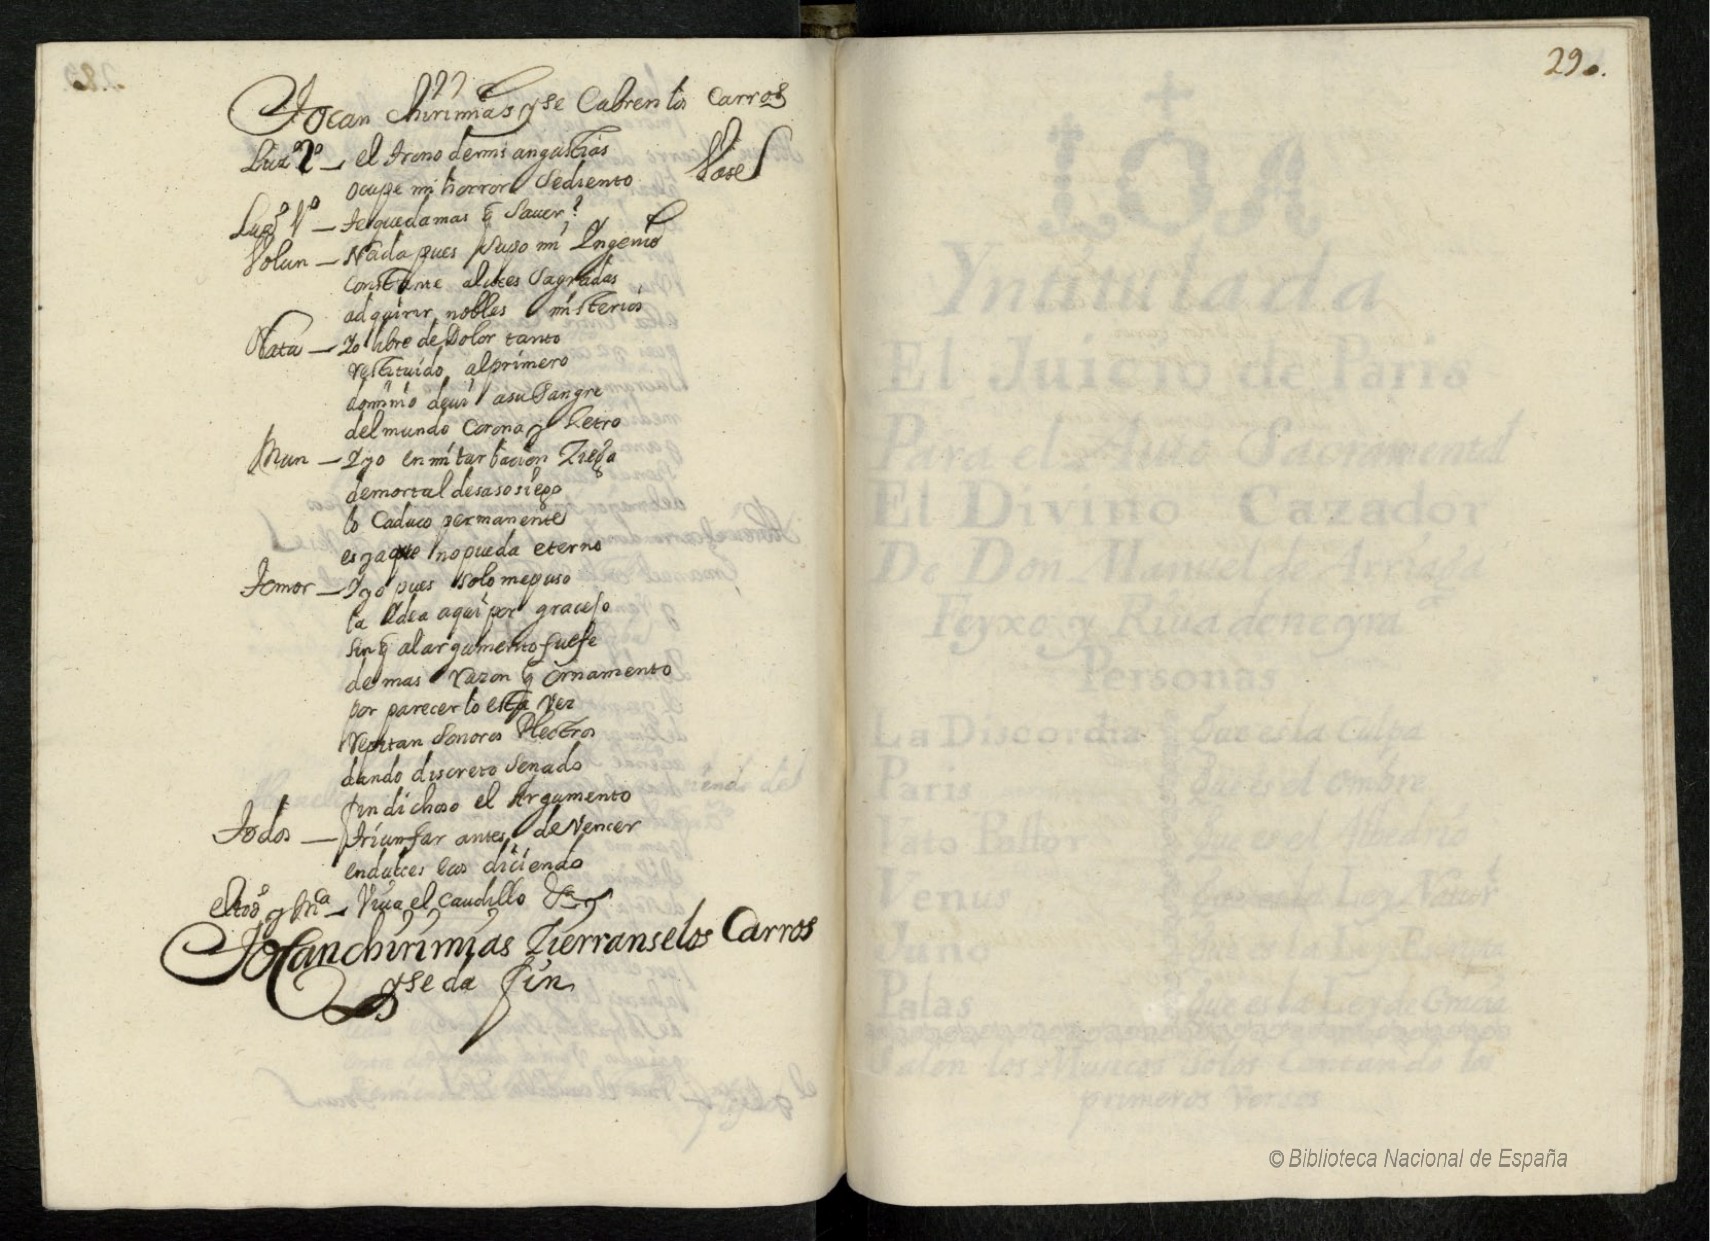 Tocan chirimias y se Cabren los Carros
Luz 2º — el trono de mis angustias
ocupe mi horror sediento Vase
Luz 1º — te queda mas q̃ Saver?
Volun — Nada pues supo mi Yngenio
constante a luces Sagradas
adquirir nobles misterios
Natu — Yo libre de Dolor tanto
restituido al primero
dominio de qui a su Sangre
del mundo Corona y Zetro
Mun — Y yo en mi turbacion Ziega
de mortal desasosiego
lo Caduco permanente
es ya que no pueda eterno
Temor — Y yo pues solo me puso
la Ydea aqui por gracejo
sin q̃ al argumento fuese
de mas razon q̃ ornamento
por parecerlo esta vez
repitan Sonoros Plectros
dando discreto Senado
fin dichoso el Argumento
Todos — triunfar antes de Vencer
en dulces ecos diciendo
y Mca — Viva el Caudillo &
Tocan chirimias Zierranse los Carros
y se da fin
29.
LOA
Yntitulada
El Juicio de Paris
Para el Auto Sacramental
El Divino Cazador
De Don Manuel de Arriaga
Feyxo y Riva de neyra
Personas
La Discordia Que es la Culpa
Paris Que es el ombre
Vato Pastor Que es el Albedrio
Venus Que es la Ley Natural
Juno Que es la Ley Escrita
Palas Que es la Ley de Gracia
Salen los Musicos solos Cantando los
primeros Versos
© Biblioteca Nacional de España